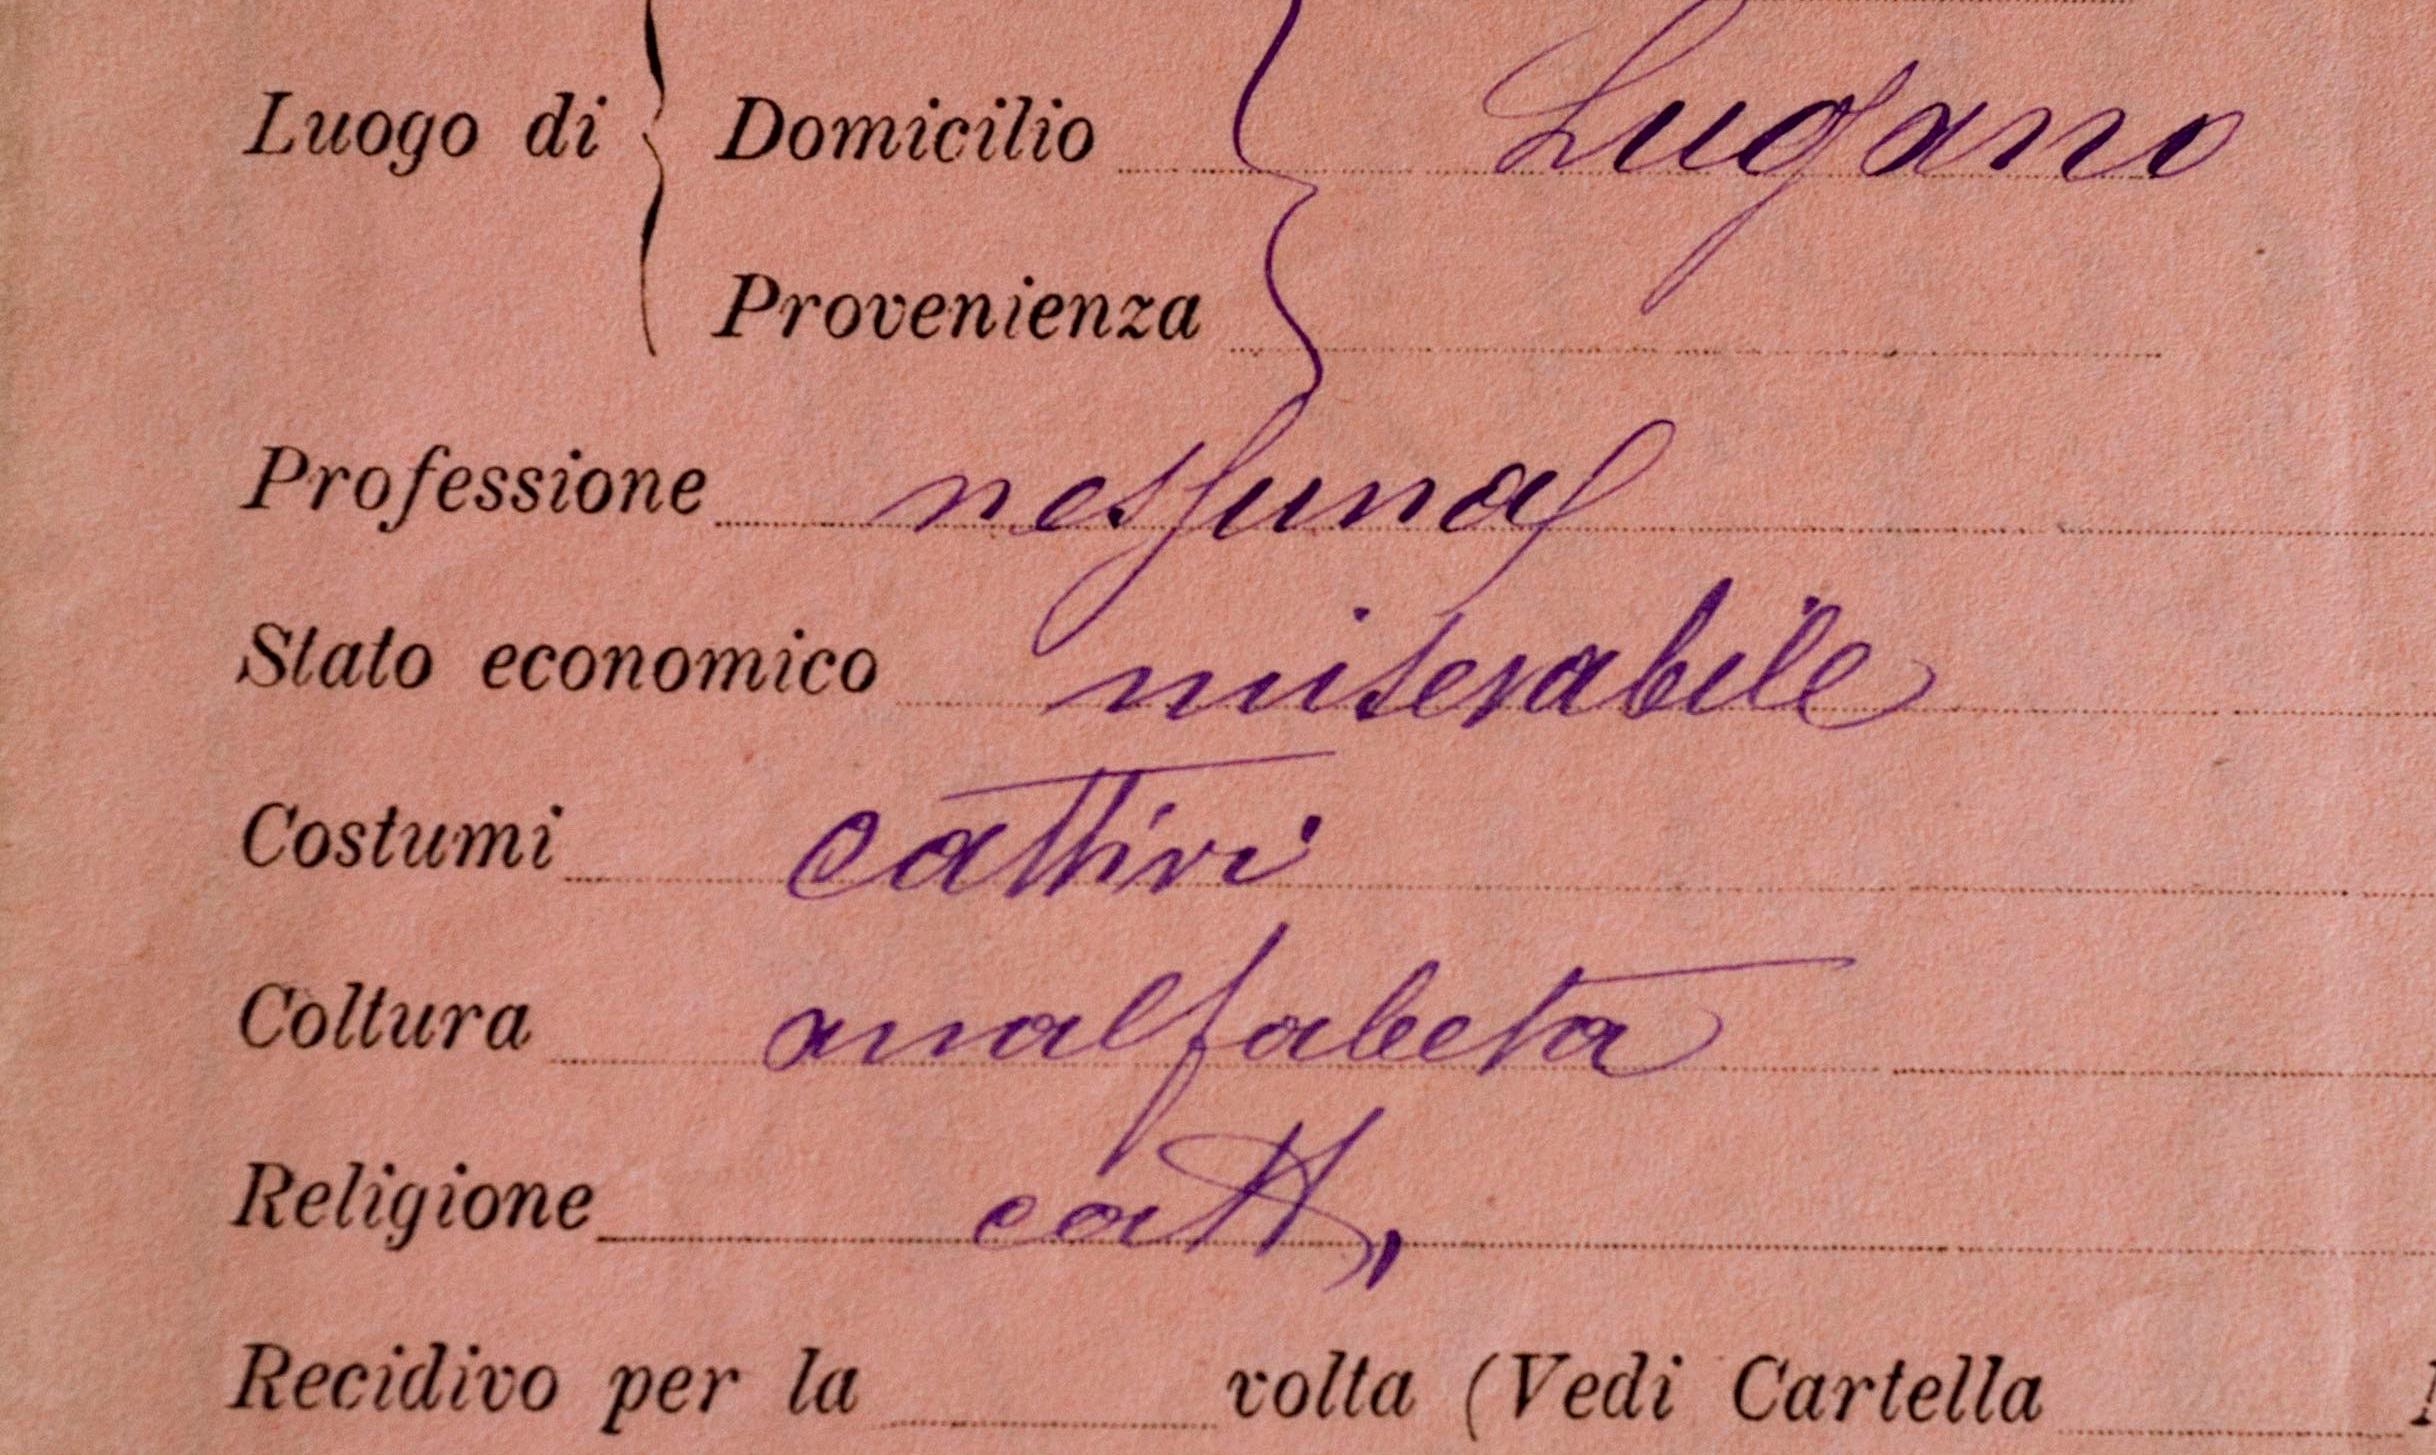 Luogo di { Domicilio Lugano
Provenienza
Professione nessuna
Stato economico miserabile
Costumi cattivi
Coltura analfabeta
Religione catt,
Recidivo per la volta (Vedi Cartella